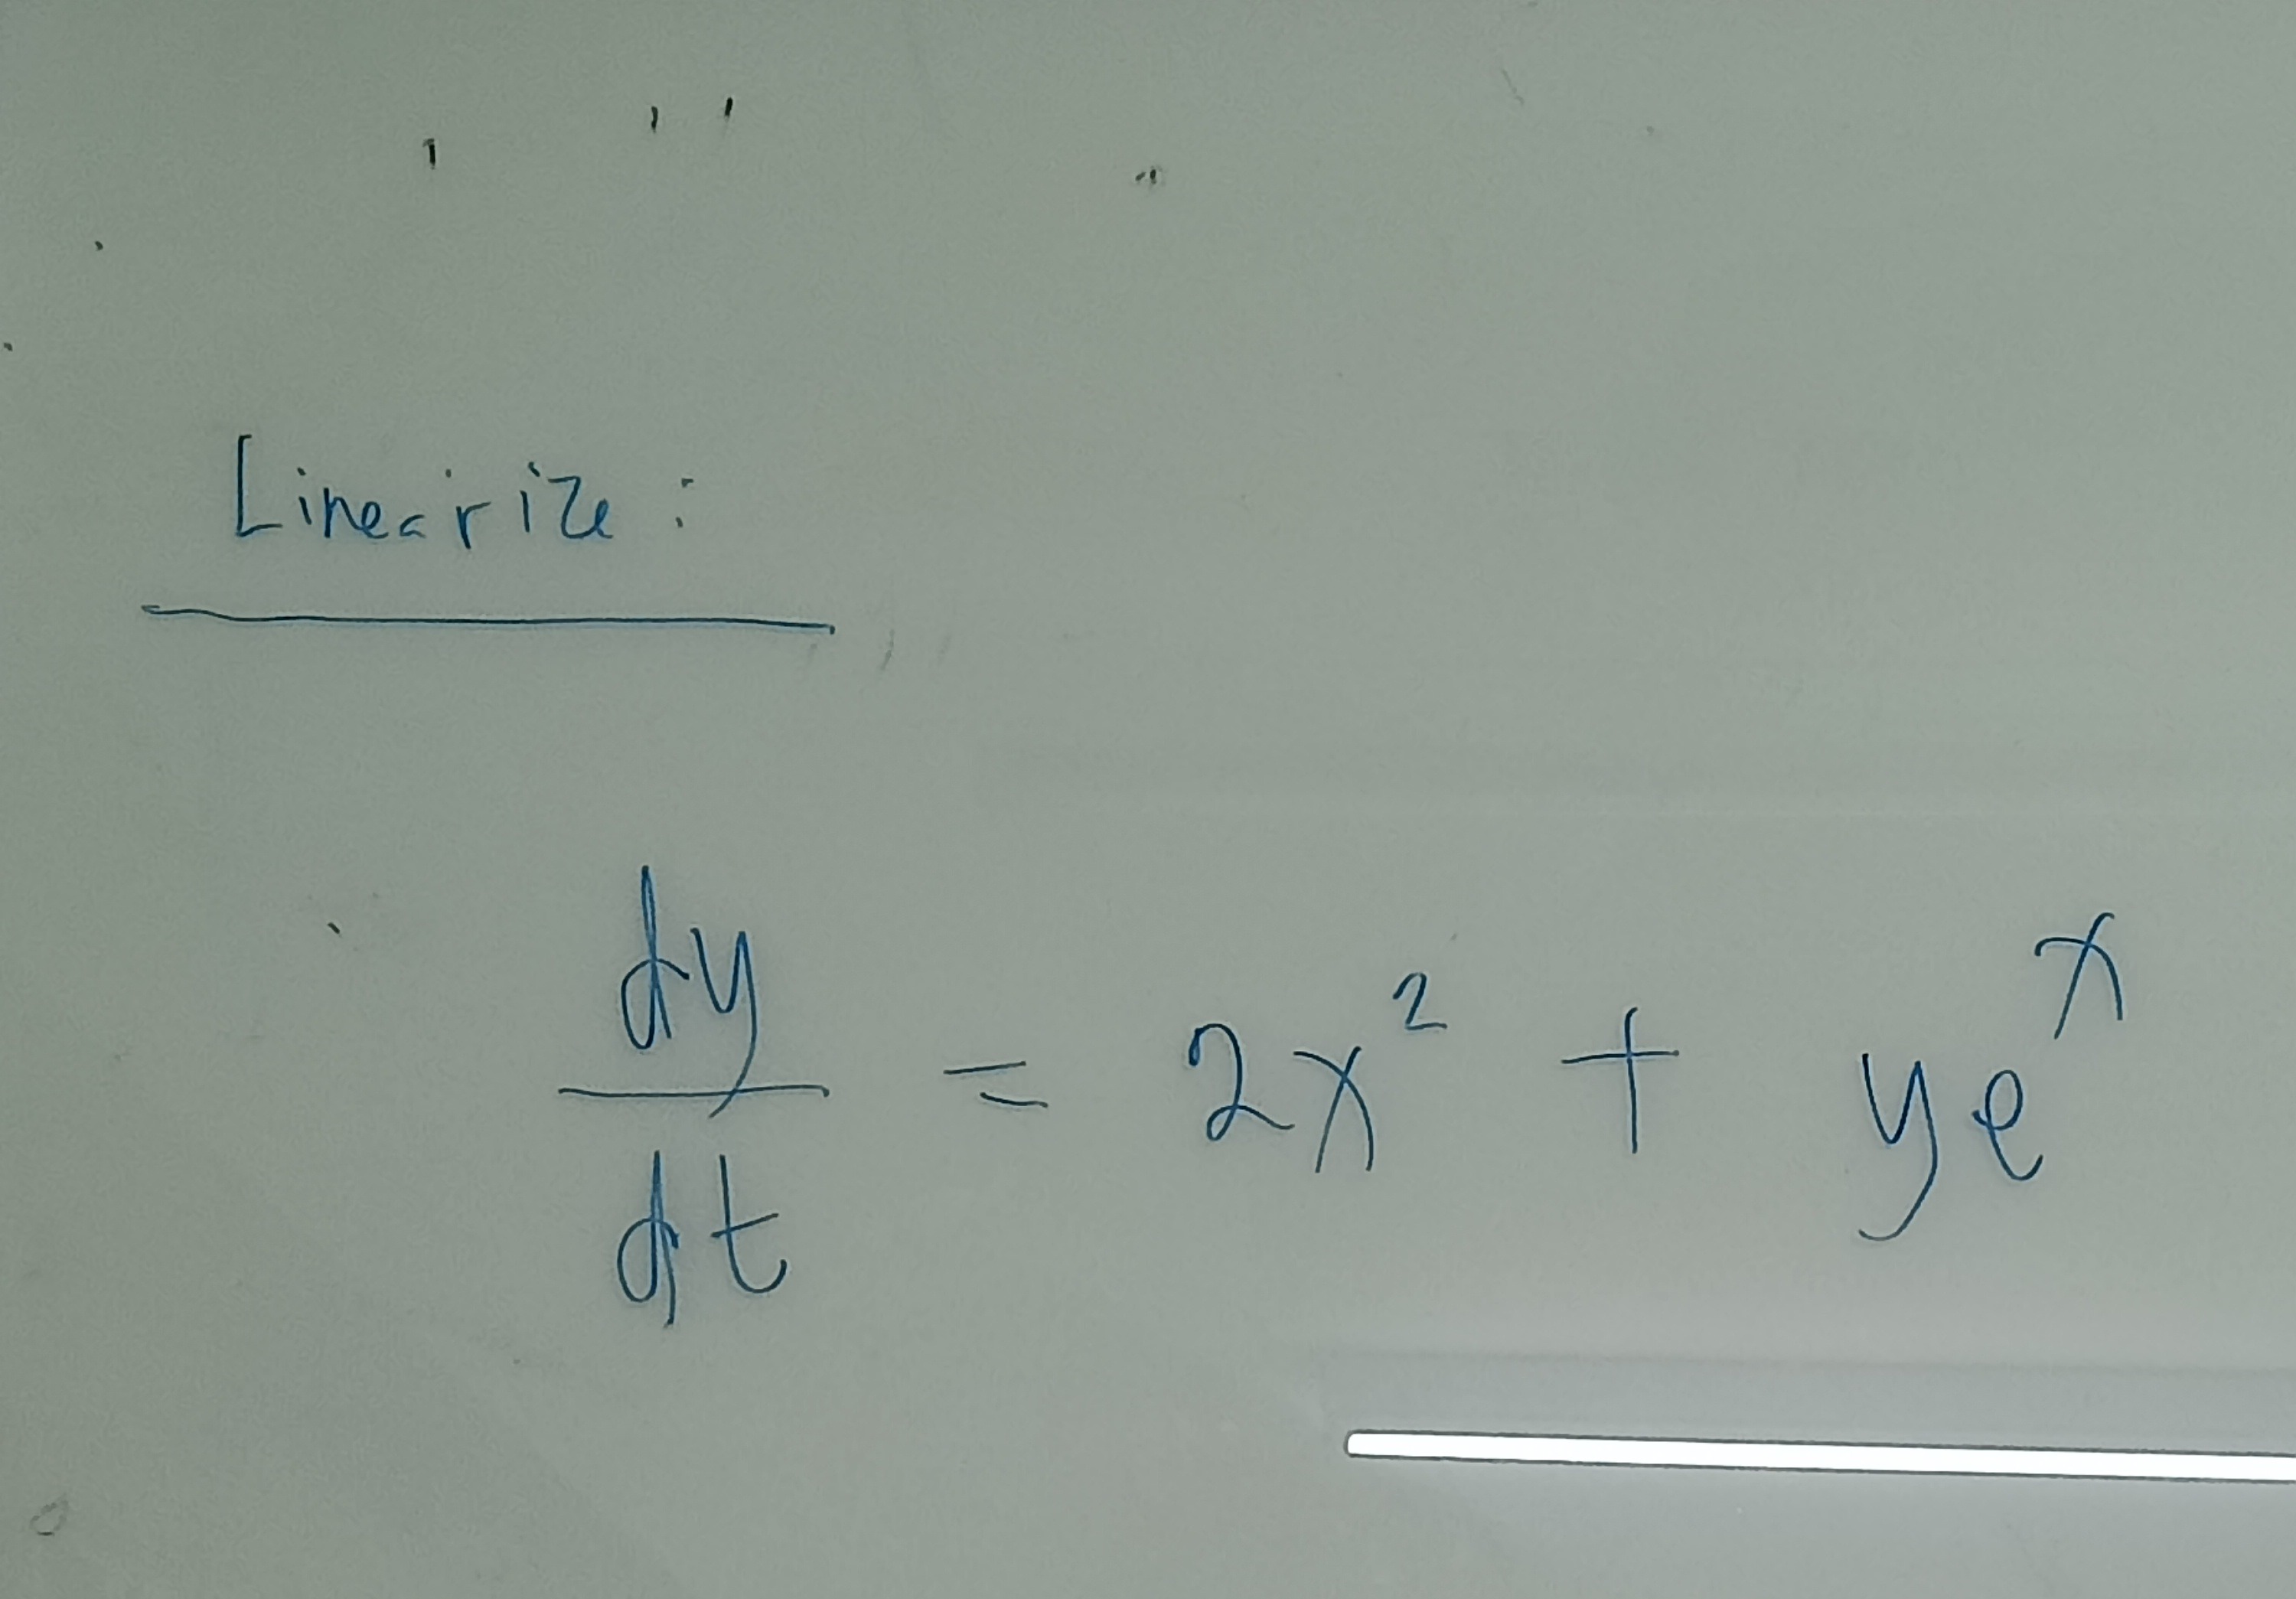 Linearize:
dy/dt = 2x² + yeˣ